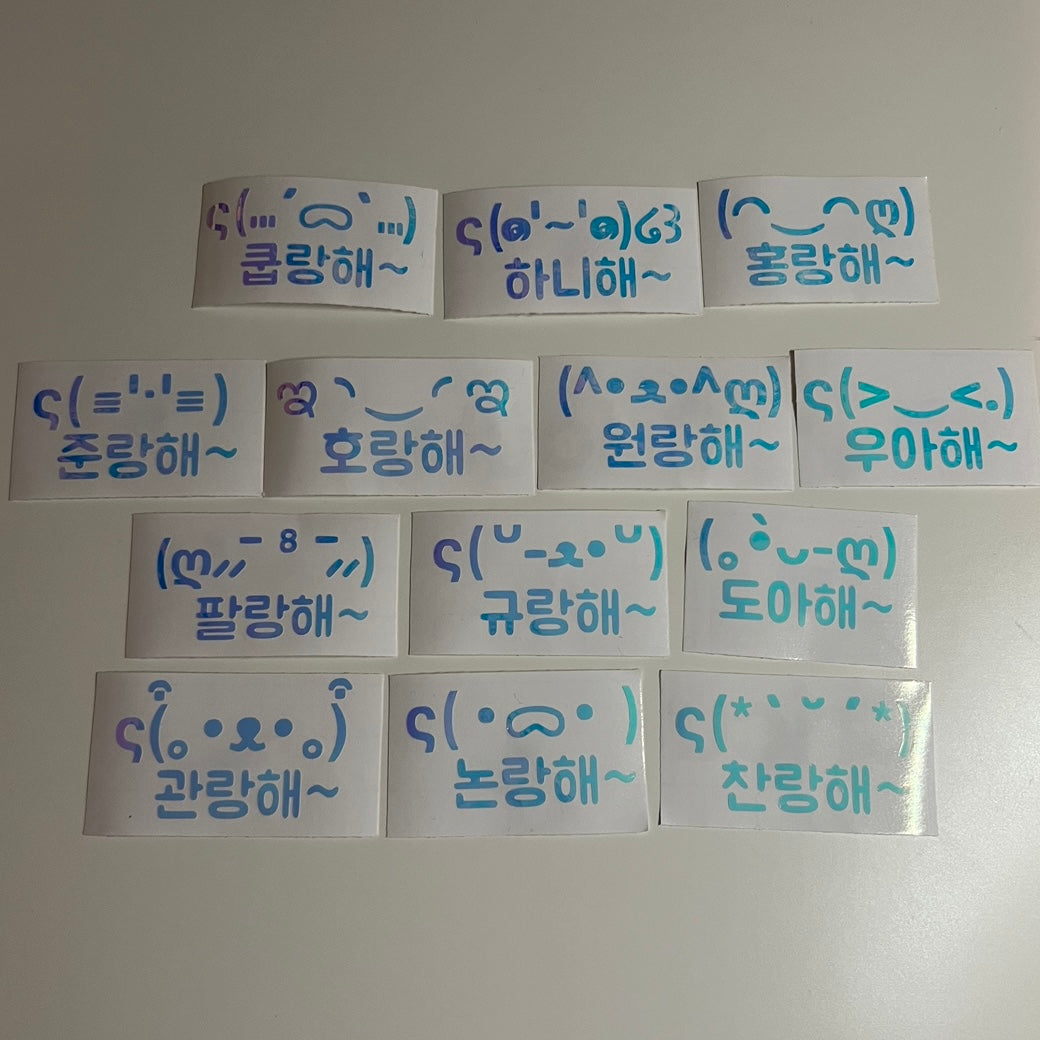 ς(…´ᗝ`…)
쿱랑해~
ς(๑'~'๑)૮꒱
하니해~
(⌒‿⌒ღ)
홍랑해~
ς(≡'·'≡)
준랑해~
ஐ◝‿◜ஐ
호랑해~
(^•ﻌ•^ღ)
원랑해~
ς(>‿<.)
우아해~
(ღ〃¯ 8 ¯〃)
팔랑해~
ς(˘-ﻌ•˘)
규랑해~
(。•̀ᴗ-ღ)
도아해~
ς(。•ﻌ•。)
관랑해~
ς( •ᗝ• )
논랑해~
ς(*ˋ ˘ ˊ*)
찬랑해~